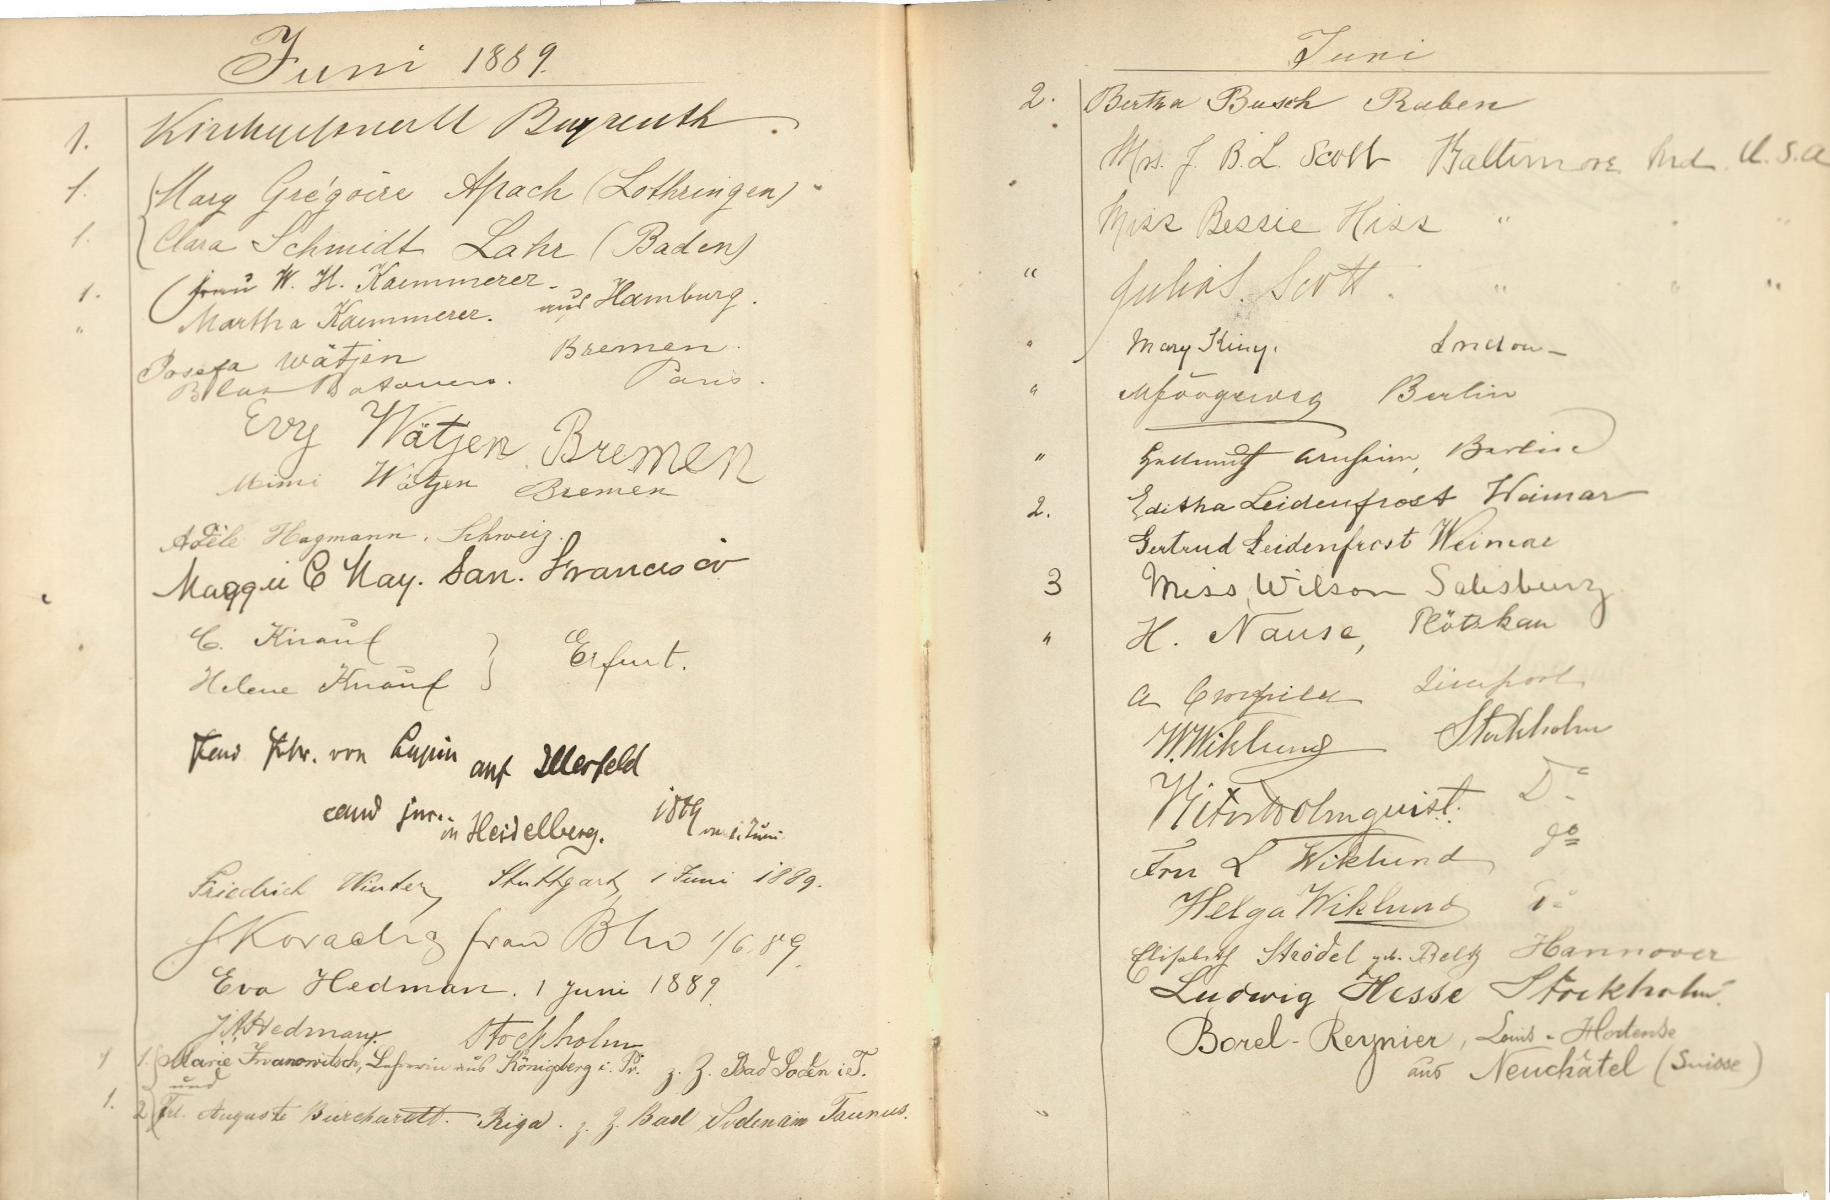 Juni 1889.
1. Bayreuth
1. Mary Grégoire Apach (Lothringen)
1. Clara Schmidt Lahr (Baden)
1. Frau W. H. Kaemmerer
" Martha Kaemmerer. aus Hamburg.
Josefa Wätjen Bremen.
Paris.
Evy Wätjen Bremen
Mimi Wätjen Bremen
Adèle Hagmann. Schweiz.
Maggie C May. San. Francisco
C. Knauf
Helene Knauf } Erfurt.
Frhr. von Lupin auf Illerfeld
cand jur. in Heidelberg. 1889 1. Juni
Friedrich Winter, Stuttgart, 1 Juni 1889.
1/6.89.
Eva Hedman. 1 Juni 1889.
J. A. Hedman. Stockholm
1 1. Marie Iwanowitsch, Lehrerin aus Königsberg i. Pr. z. Z. Bad Soden i. T.
und
1. 2) Frl. Auguste Burchardt. Riga. z. Z. Bad Soden am Taunus.
Juni
2. Bertha Busch
Mrs. J. B. L. Scott Baltimore Md. U.S.A
Miss Bessie Hiss " " "
" Julia S. Scott. " " "
" Mary King. London
" Berlin
" Hellmuth Arnheim, Berlin
2. Editha Leidenfrost Weimar
Gertrud Leidenfrost Weimar
3 Miss Wilson Salisbury
" H. Nause, Plötzkau
A Liverpool
W. Wiklund Stockholm
Holmquist. Do
Fru L Wiklund do
Helga Wiklund Do
Elisabeth Strödel geb. Beltz Hannover
Ludwig Hesse Stockholm.
Borel-Reynier, Louis-Hortense
aus Neuchâtel (Suisse)